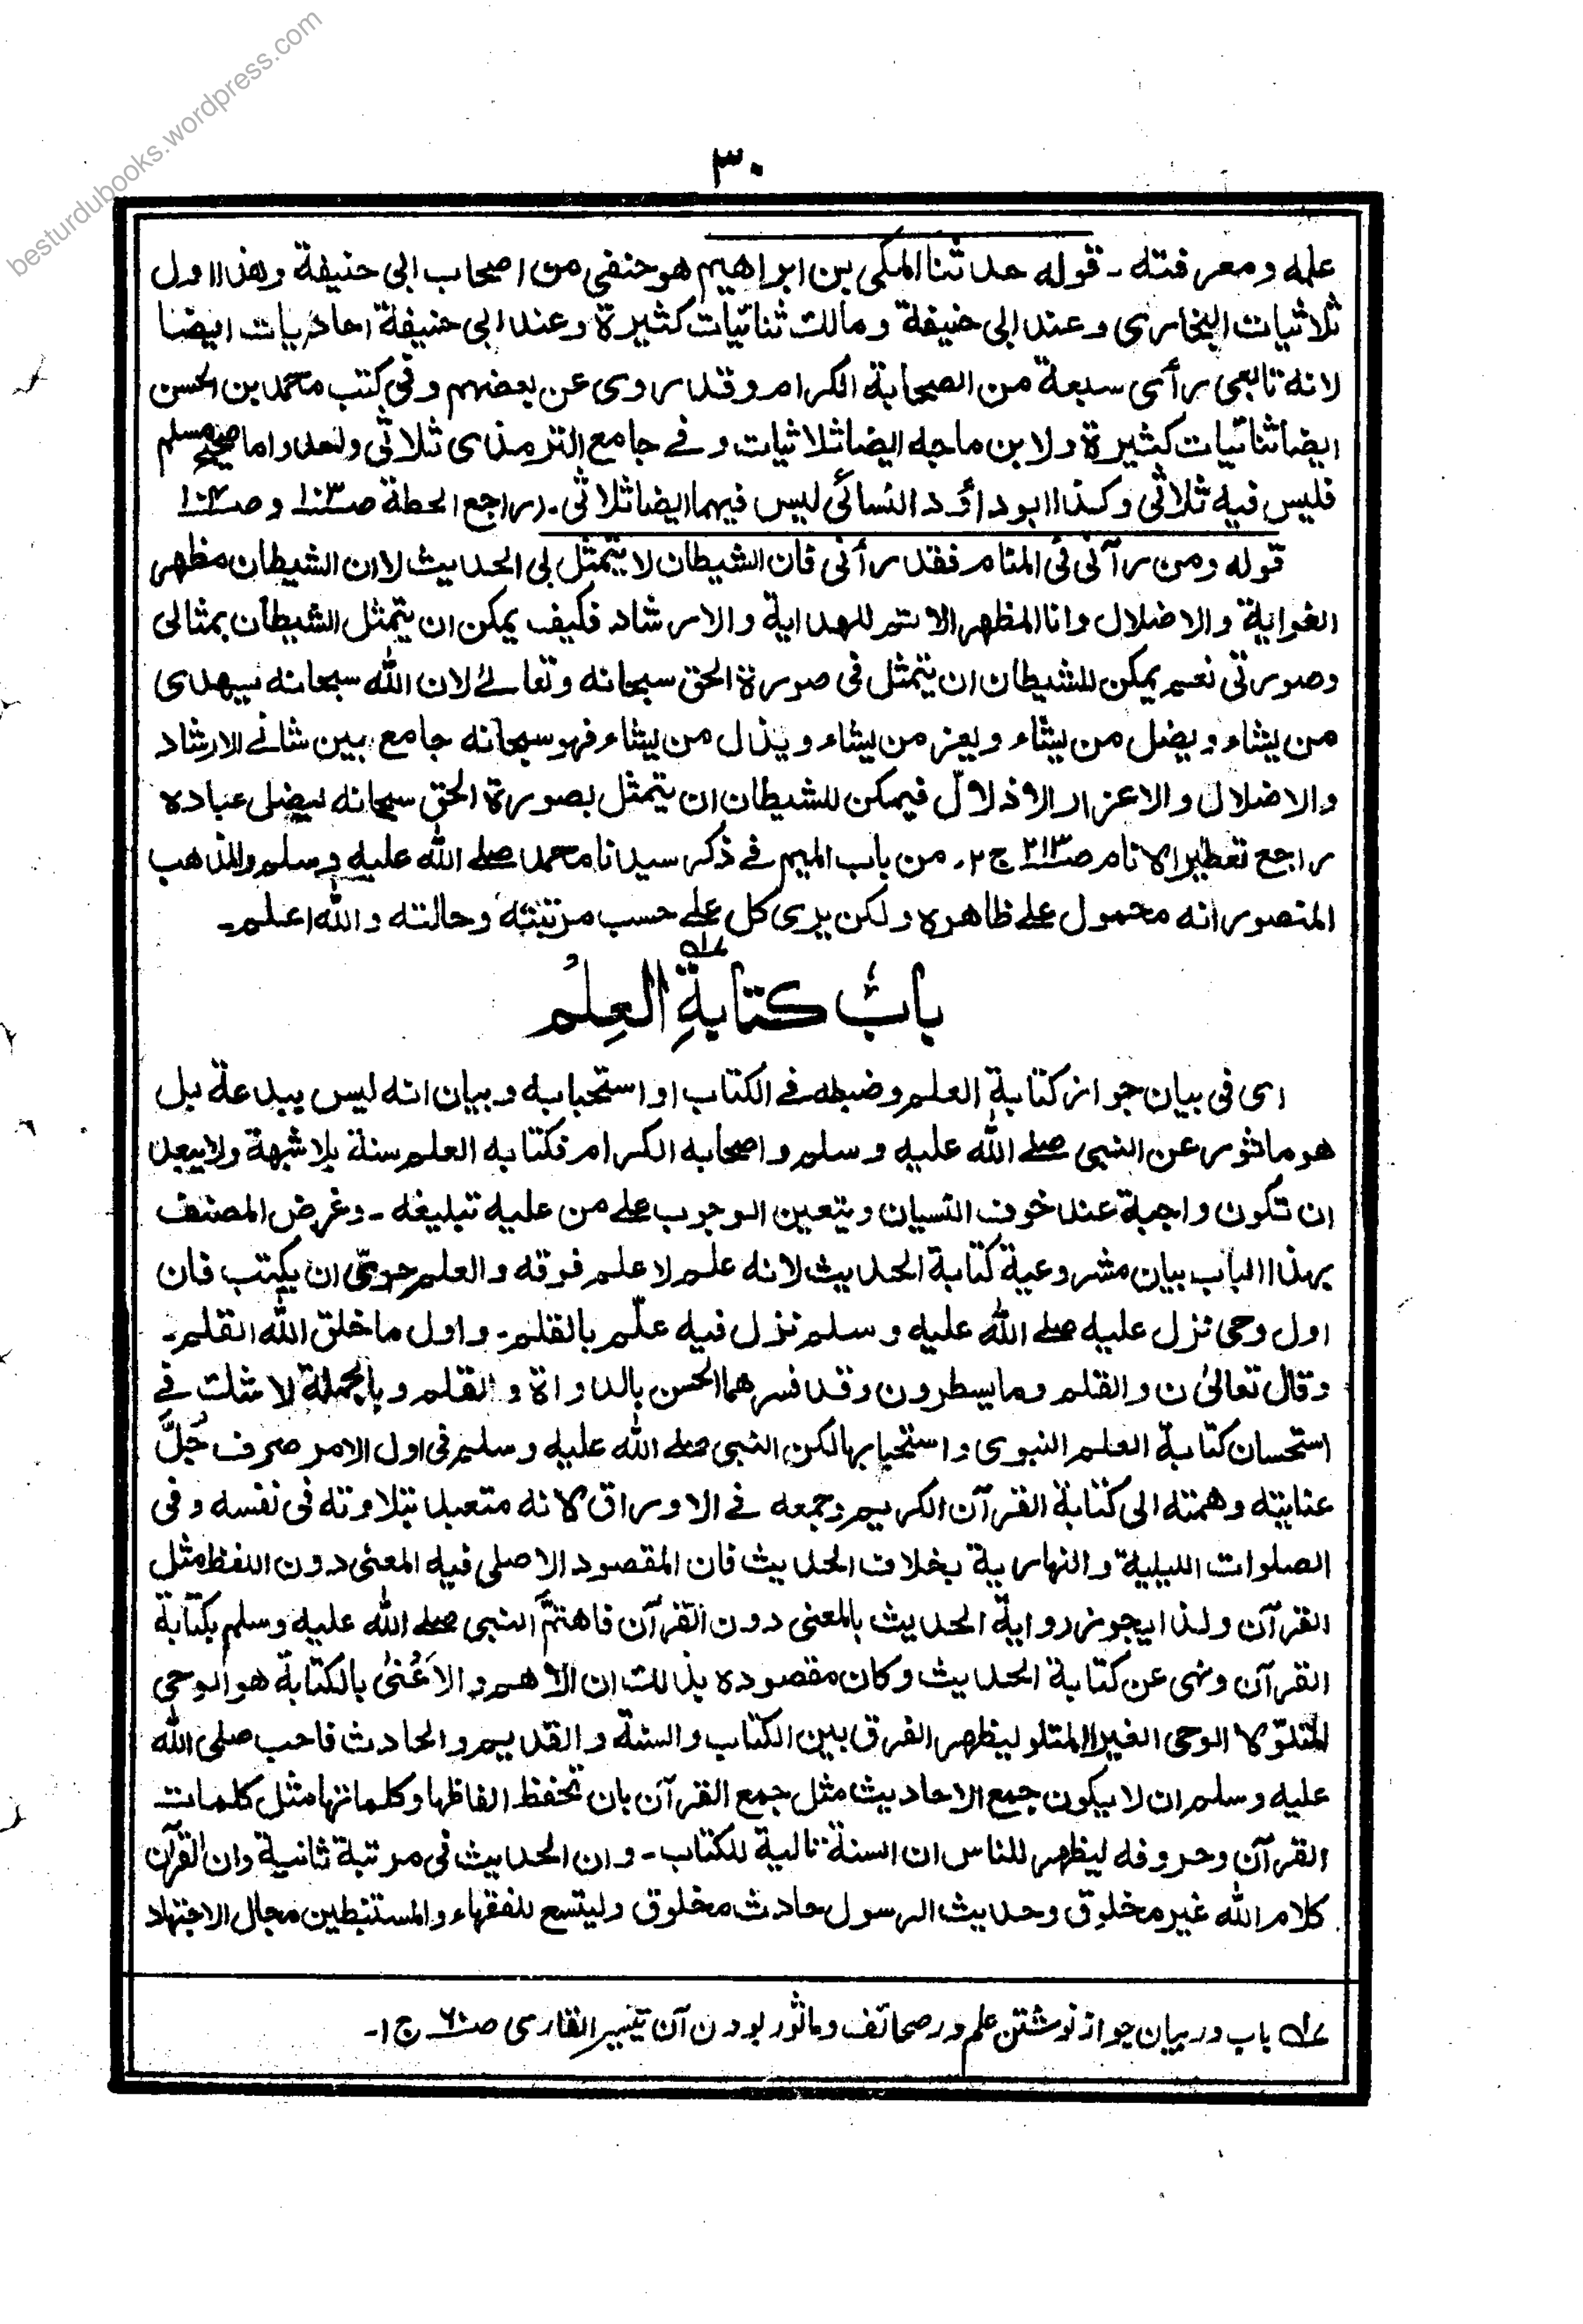 besturdubooks.wordpress.com
٣٠
علمه ومعرفته - قوله حدثنا المكى بن ابراهيم هو حنفى من اصحاب ابى حنيفة وهذا اول
ثلاثيات البخارى وعند ابى حنيفة ومالك ثنائيات كثيرة وعند ابى حنيفة احاديات ايضا
لانه تابعى رأى سبعة من الصحابة الكرام وقد روى عن بعضهم وفى كتب محمد بن الحسن
ايضا ثنائيات كثيرة ولابن ماجه ايضا ثلاثيات وفے جامع الترمذى ثلاثى واحد واما صحيح مسلم
فليس فيه ثلاثى وكذا ابوداؤد والنسائى ليس فيهما ايضا ثلاثى. (راجع الحطة صـ١٠٣ وصـ١٠٤
قوله ومن رآنى فى المنام فقد رأنى فان الشيطان لا يتمثل بى الحديث لان الشيطان مظهر
الغواية والاضلال وانا المظهر الاتم للهداية والارشاد فكيف يمكن ان يتمثل الشيطان بمثالى
وصورتى نعم يمكن للشيطان ان يتمثل فى صورة الحق سبحانه وتعالےٰ لان الله سبحانه يهدى
من يشاء ويضل من يشاء ويعز من يشاء ويذل من يشاء فهو سبحانه جامع بين شانے الارشاد
والاضلال والاعزاز والاذلال فيمكن للشيطان ان يتمثل بصورة الحق سبحانه ليضل عباده
راجع تعطير الانام صـ٢١٣ ج٢. من باب الميم فے ذكر سيدنا محمد صلے الله عليه وسلم والمذهب
المنصور انه محمول علے ظاهره ولكن يرى كل علے حسب مرتبته وحالته والله اعلم-
بابُ كتابةِ العِلمُ
اى فى بيان جواز كتابة العلم وضبطه فے الكتاب او استحبابه وبيان انه ليس ببدعة بل
هو ماثور عن النبى صلے الله عليه وسلم واصحابه الكرام فكتابه العلم سنة بلا شبهة ولا يبعد
ان تكون واجبة عند خوف النسيان ويتعين الوجوب علے من عليه تبليغه - وغرض المصنف
بهذا الباب بيان مشروعية كتابة الحديث لانه علم لا علم فوقه والعلم حرىّ ان يكتب فان
اول وحى نزل عليه صلے الله عليه وسلم نزل فيه علّم بالقلم- واول ما خلق الله القلم-
وقال تعالىٰ ن والقلم وما يسطرون وقد فسرهما الحسن بالدواة والقلم وبالجملة لا شك فے
استحسان كتابة العلم النبوى واستحبابها لكن النبى صلے الله عليه وسلم فى اول الامر صرف جُلَّ
عنايته وهمته الى كتابة القرآن الكريم وجمعه فے الاوراق لانه متعبد بتلاوته فى نفسه وفى
الصلوات الليلية والنهارية بخلاف الحديث فان المقصود الاصلى فيه المعنى دون اللفظ مثل
القرآن ولذا يجوز رواية الحديث بالمعنى دون القرآن فاهتمَّ النبى صلے الله عليه وسلم بكتابة
القرآن ونهى عن كتابة الحديث وكان مقصوده بذلك ان الاهم والاَعْنىٰ بالكتابة هو الوحى
المتلوّ لا الوحى الغير المتلو ليظهر الفرق بين الكتاب والسنة والقديم والحادث فاحب صلى الله
عليه وسلم ان لا يكون جمع الاحاديث مثل جمع القرآن بان تحفظ الفاظها وكلماتها مثل كلمات
القرآن وحروفه ليظهر للناس ان السنة تالية للكتاب - وان الحديث فى مرتبة ثانية وان القرآن
كلام الله غير مخلوق وحديث الرسول حادث مخلوق وليتسع للفقهاء والمستنبطين مجال الاجتهاد
باب در بيان جواز نوشتن علم در صحائف وماثور بودن آن تيسير القارى صـ٦٠ ج١-